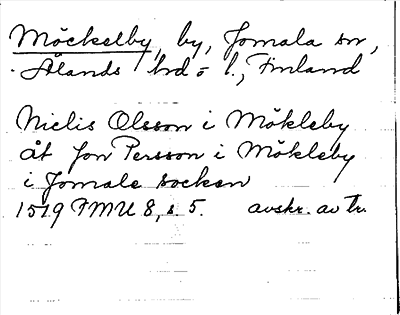 Möckelby, by, Jomala sn,
Ålands hd o l., Finland
Nielis Olsson i Mökleby
åt Jon Persson i Mökleby
i Jomale socken
1519 FMU 8, s. 5. avskr. av tr.